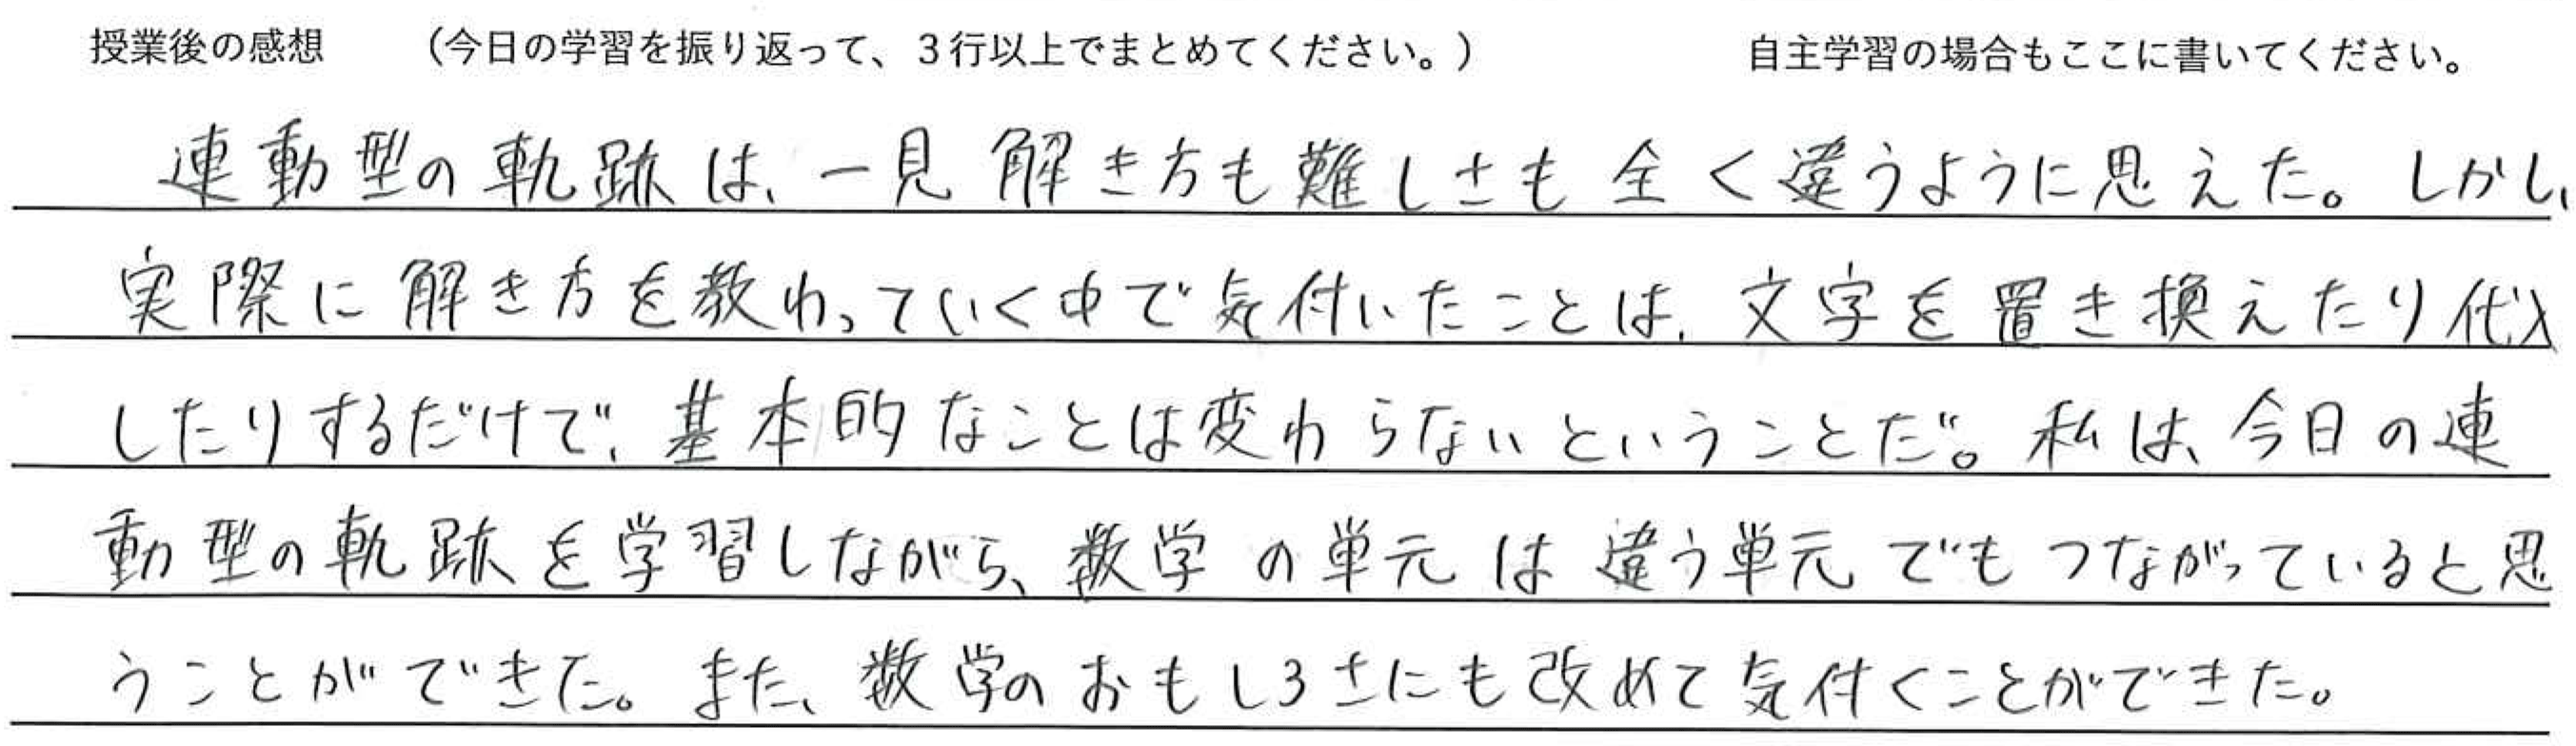 授業後の感想　（今日の学習を振り返って、３行以上でまとめてください。）　自主学習の場合もここに書いてください。
連動型の軌跡は、一見解き方も難しさも全く違うように思えた。しかし、
実際に解き方を教わっていく中で気付いたことは、文字を置き換えたり代入
したりするだけで、基本的なことは変わらないということだ。私は、今日の連
動型の軌跡を学習しながら、数学の単元は違う単元でもつながっていると思
うことができた。また、数学のおもしろさにも改めて気付くことができた。